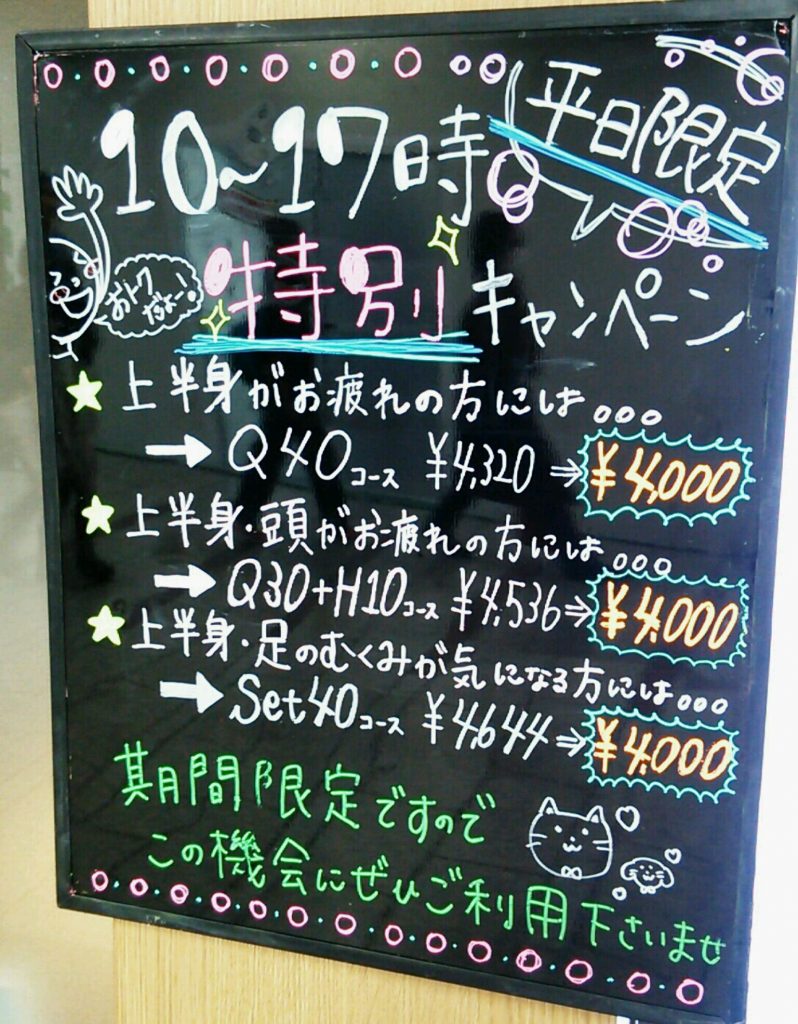 平日限定
10〜17時
おトクだよー!
特別キャンペーン
上半身がお疲れの方には...
→ Q40コース ¥4,320 ⇒ ¥4,000
上半身・頭がお疲れの方には...
→ Q30+H10コース ¥4,536 ⇒ ¥4,000
上半身・足のむくみが気になる方には...
→ Set40コース ¥4,644 ⇒ ¥4,000
期間限定ですので
この機会にぜひご利用下さいませ